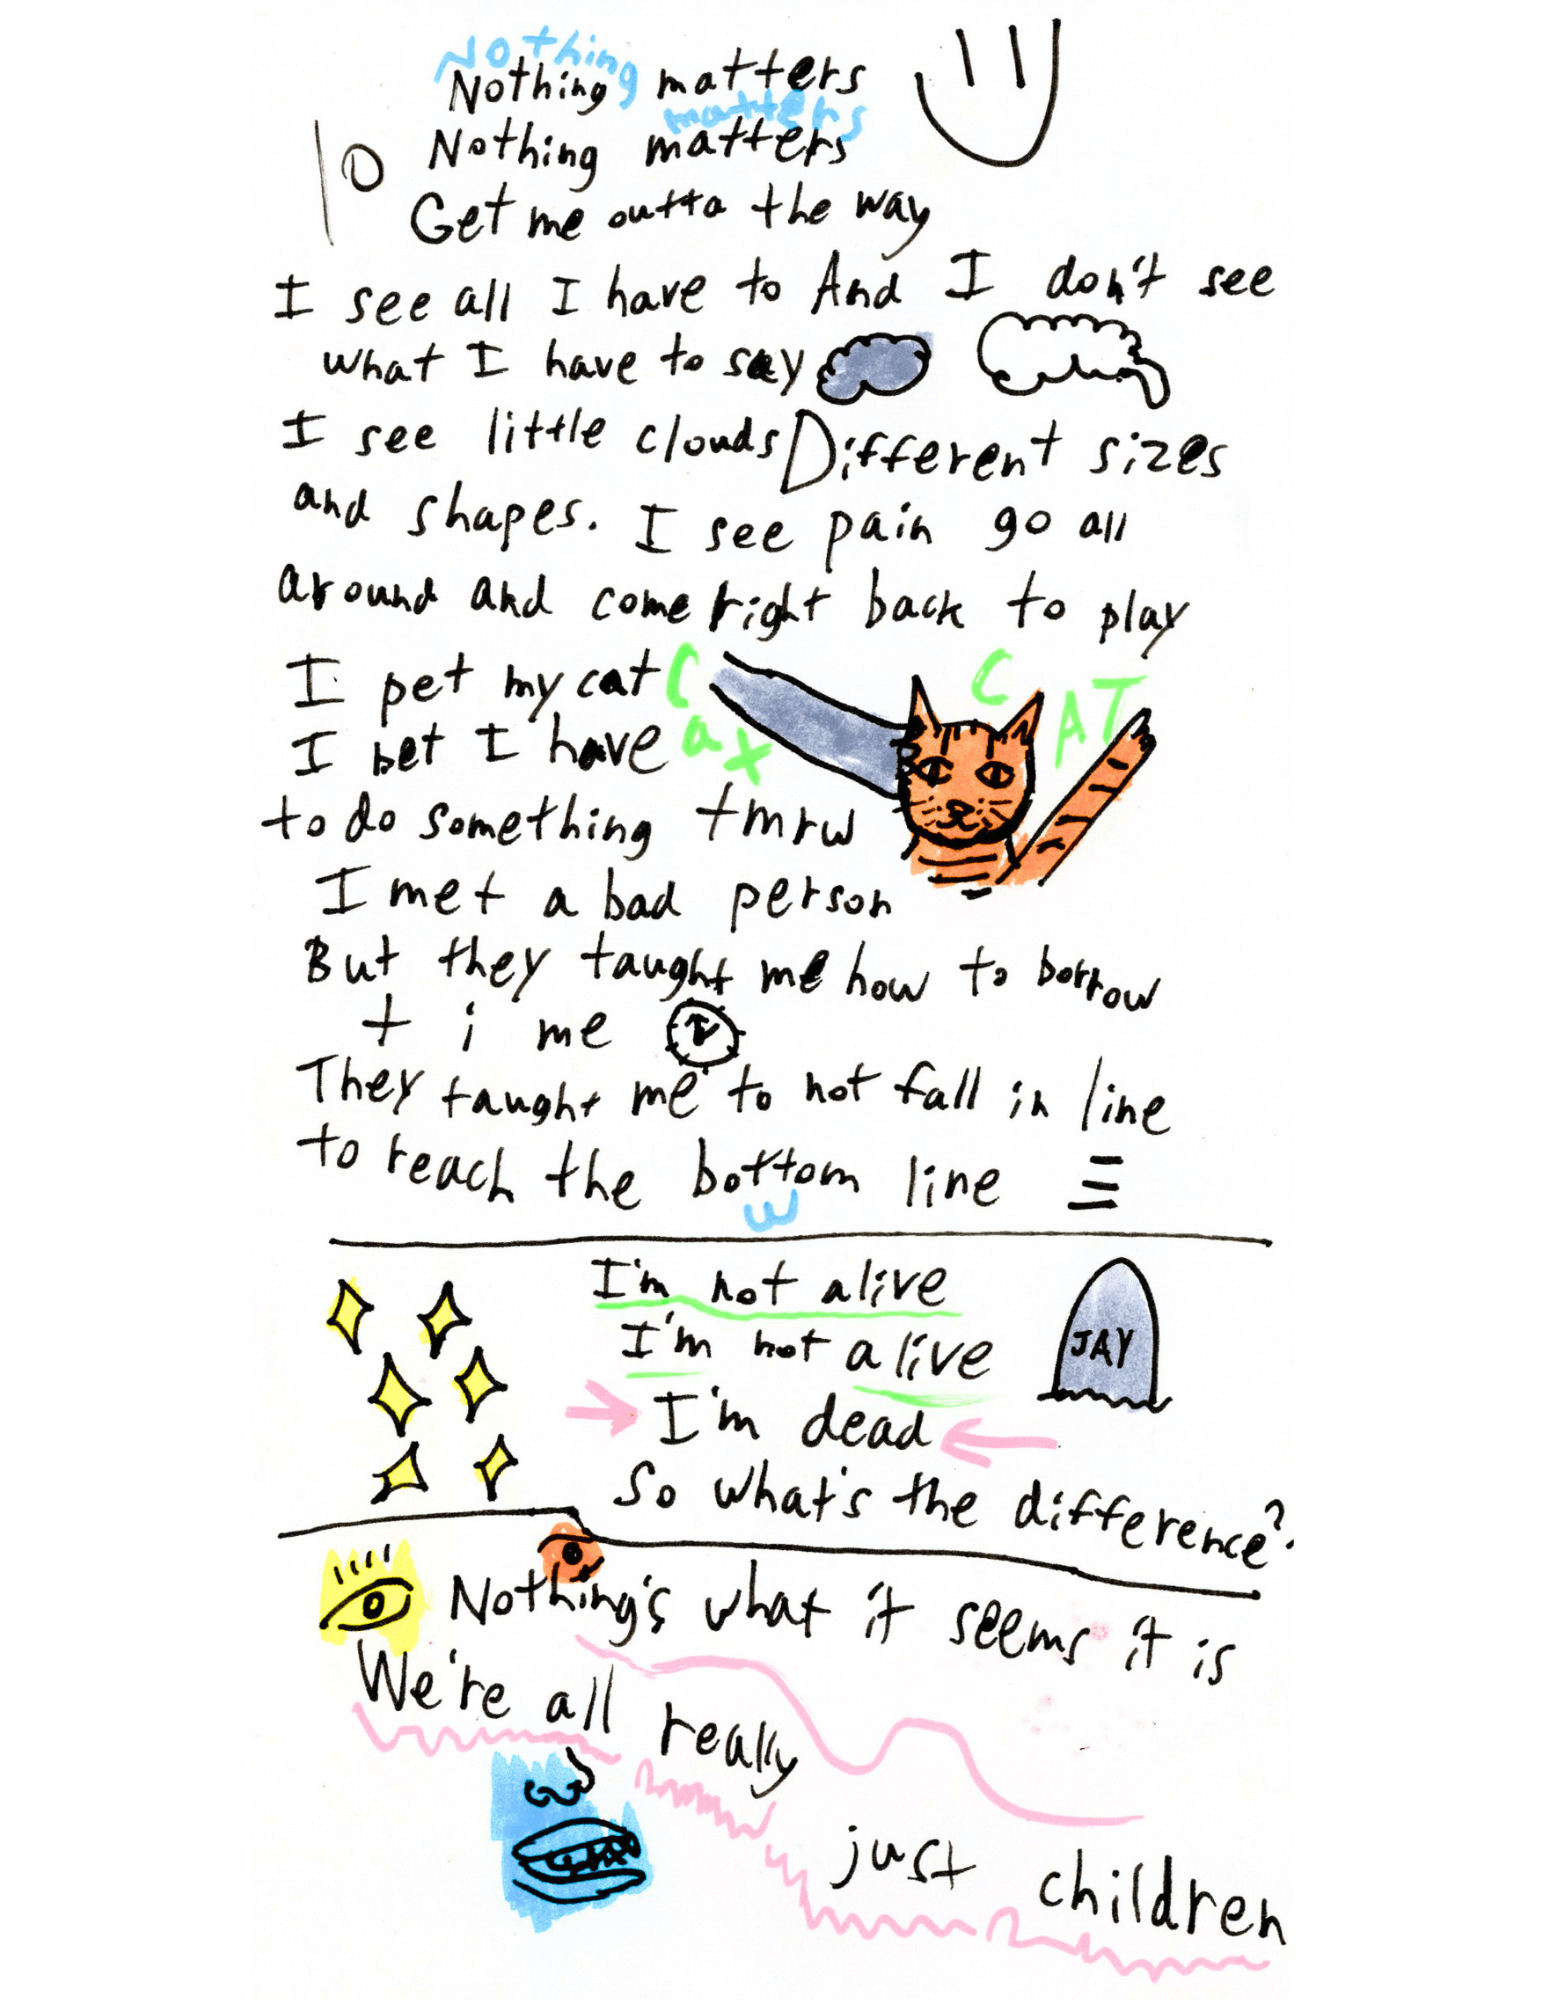 Nothing
Nothing matters
matters
10
Nothing matters
Get me outta the way
I see all I have to And I don't see
what I have to say
I see little clouds Different sizes
and shapes. I see pain go all
around and come right back to play
I pet my cat
Cat
CAT
I bet I have
to do something tmrw
I met a bad person
But they taught me how to borrow
time
They taught me to not fall in line
to reach the bottom line
w
I'm not alive
I'm not alive
JAY
I'm dead
So what's the difference?
Nothing's what it seems it is
We're all really
just children